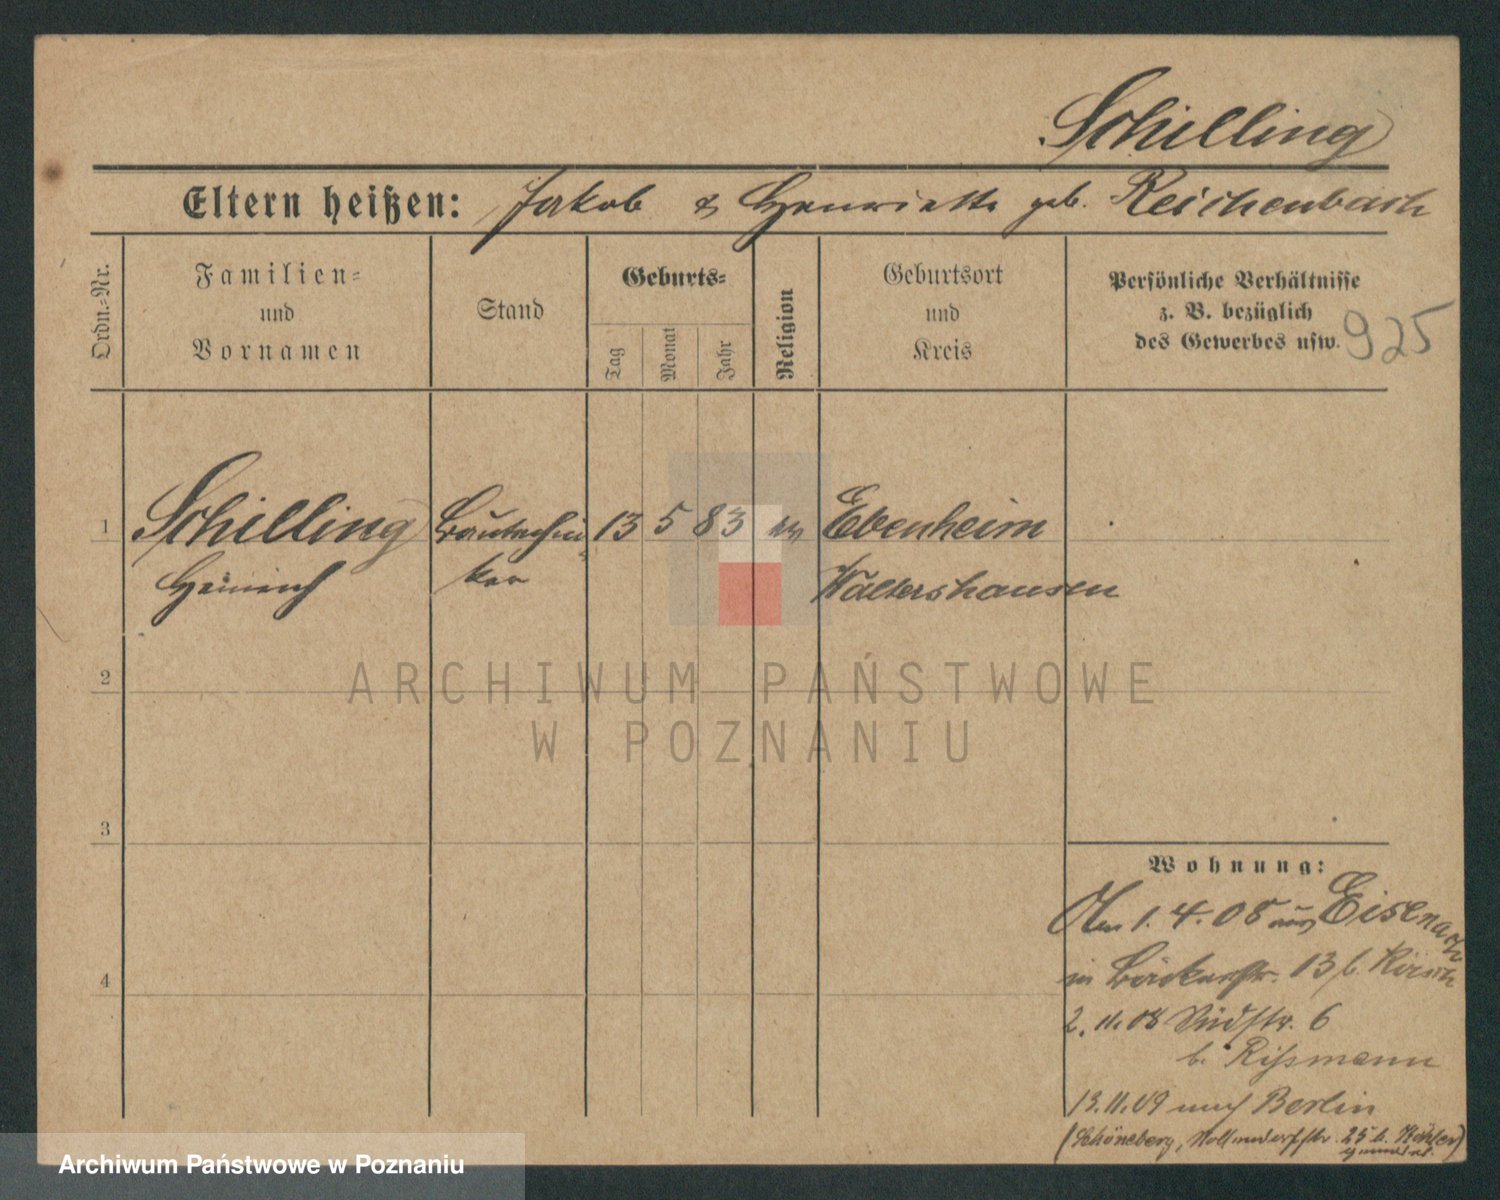 Schilling
Eltern heißen: Jakob & Henriette geb. Reichenbach
Ordn.-Nr.
Familien-
und
Vornamen
Stand
Geburts-
Tag
Monat
Jahr
Religion
Geburtsort
und
Kreis
Persönliche Verhältnisse
z. B. bezüglich
des Gewerbes usw.
925
1 Schilling Bautechni- 13 5 83 ev Ebenheim
Heinrich ker Waltershausen
2
3
4
Wohnung:
1. 4. 08 aus Eisenach
in Bäckerstr. 13 b. Kirsch
2. 11. 08 Südstr. 6
b. Rißmann
13. 11. 09 nach Berlin
(Schöneberg, 25 b. Köhler)
ARCHIWUM PAŃSTWOWE
W POZNANIU
Archiwum Państwowe w Poznaniu